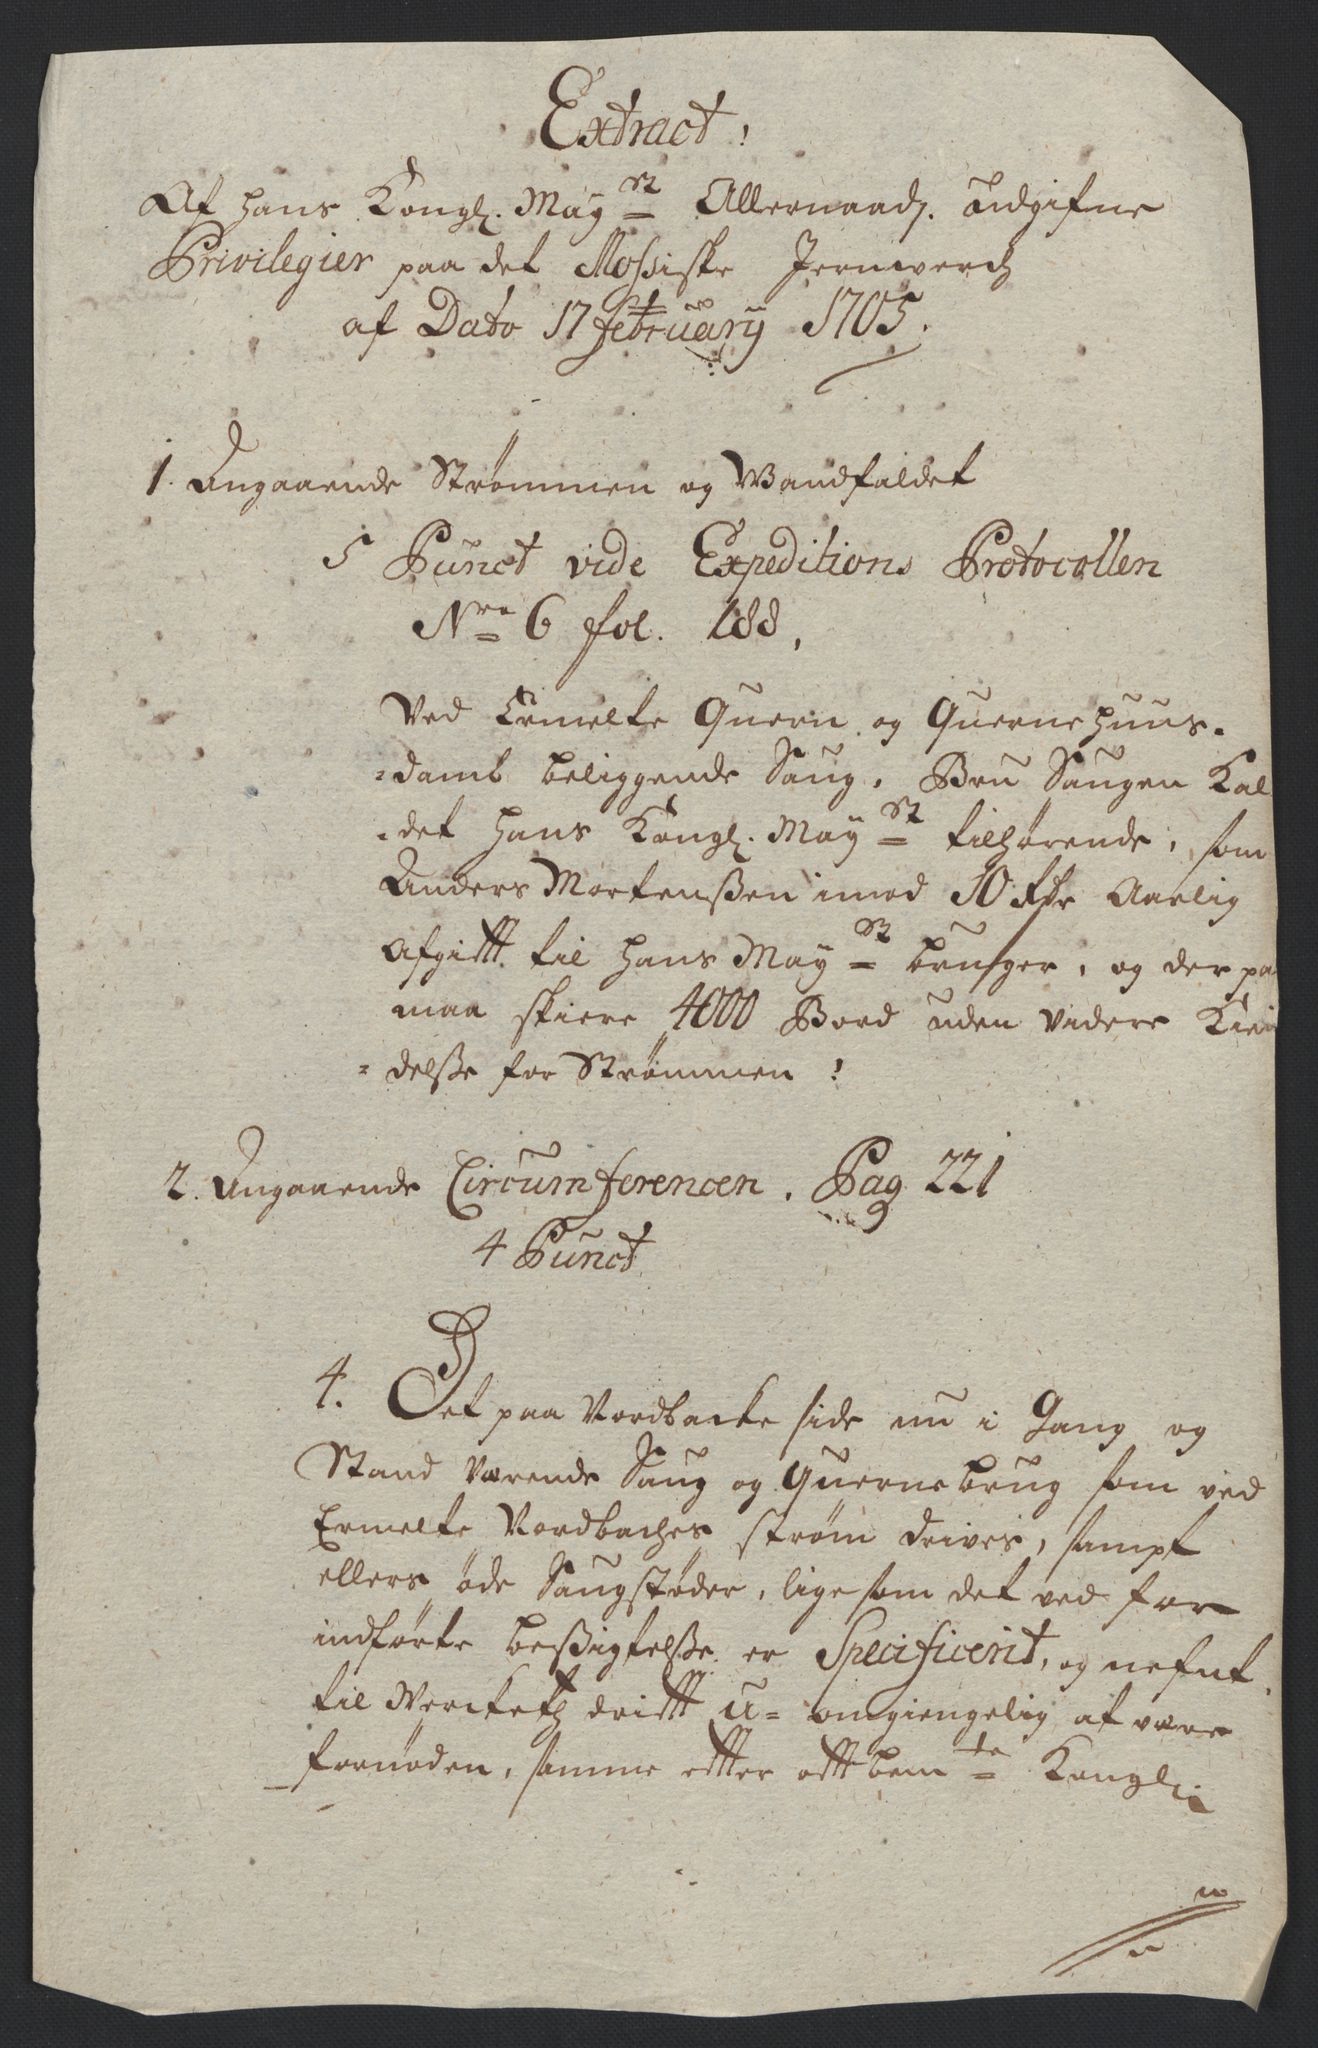 Extract!
Af Hans Kongl. May:st Allernaad. udgifne
Privilegier paa det Mossiske Jernwerch
af Dato 17 February 1705.
1. Angaaende Strømmen og Wandfaldet
5 Punct vide Expeditions Protocollen
Nro 6 fol. 188,
Ved Ermelte Quern og Quernehuus-
=damb beliggende Saug, Bru Saugen Kal
=det Hans Kongl. May:st tilhørende, som
Anders Mortenßen imod 50 Rdr Aarlig
Afgifft til Hans May:st bruger, og der pa
maa skiere 4000 Bord uden videre Kien
=delße for Strømmen!
2. Angaaende Circumferencen. Pag 221
4 Punct
4. Det paa Nordbacke side nu i Gang og
Stand værende Saug og Quernebrug som ved
Ermelte Nordbaches strøm drives, sampt
ellers øde Saugstøder, lige som det ved for
indførte beßigtelße er Specificerit, og nefnt
til Werckets drifft u=omgiengelig at være
fornøden, samme effter offtbem:te Kongl.